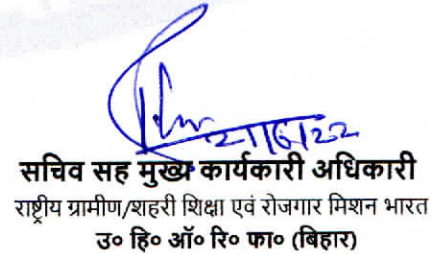 21/6/22
सचिव सह मुख्य कार्यकारी अधिकारी
राष्ट्रीय ग्रामीण/शहरी शिक्षा एवं रोजगार मिशन भारत
उ० हि० ऑ० रि० फा० (बिहार)